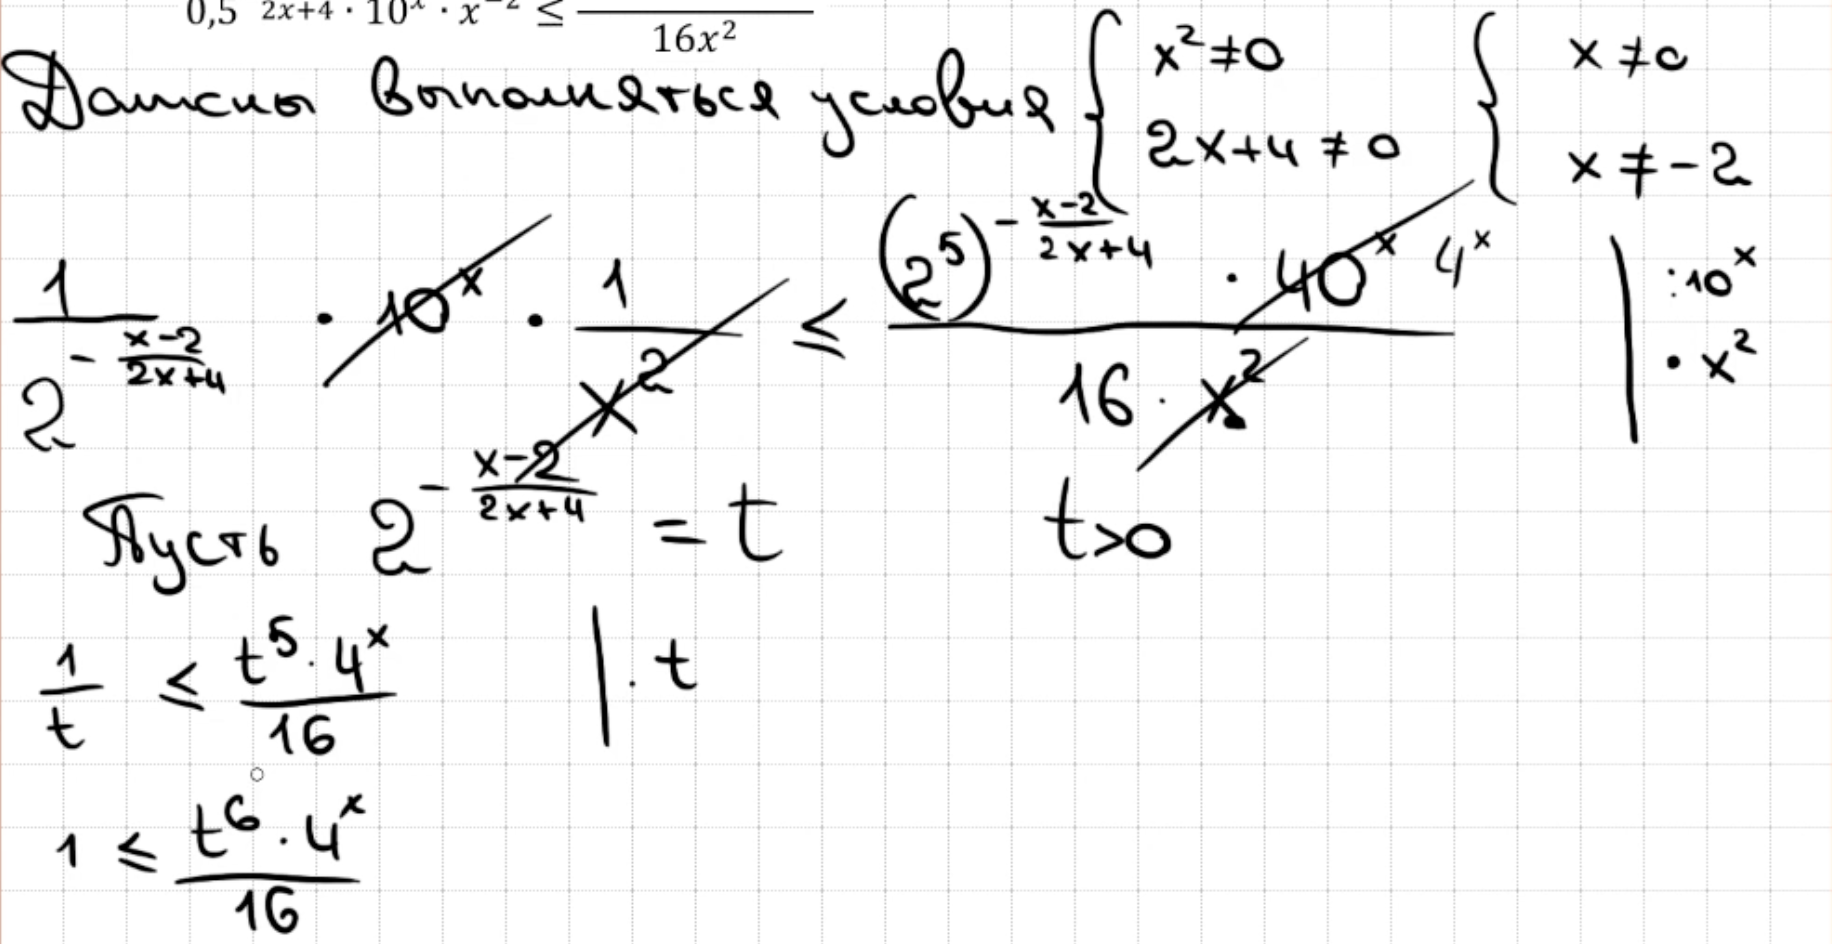 0,5 2x+4 · 10^x · x^-2 ≤ ——— / 16x²
Должны выполняться условия { x² ≠ 0 { x ≠ 0
2x+4 ≠ 0 x ≠ -2
1 / 2^(-(x-2)/(2x+4)) · 10^x · 1/x² ≤ (2^5)^(-(x-2)/(2x+4)) · 40^x 4^x / 16 · x² | :10^x · x²
Пусть 2^(-(x-2)/(2x+4)) = t t>0
1/t ≤ t^5 · 4^x / 16 | · t
1 ≤ t^6 · 4^x / 16